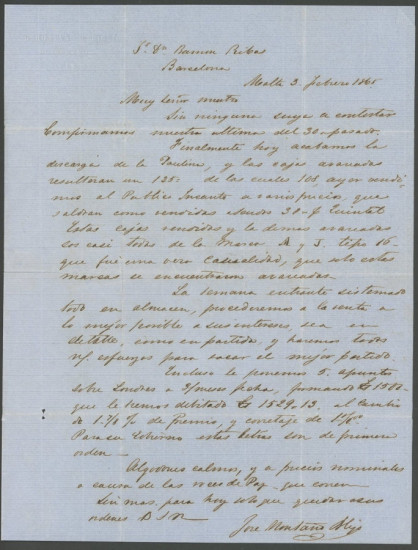 Sr. Dn. Ramon Ribas
Barcelona
Malta 3 febrero 1865
Muy Señor nuestro
Sin ninguna suya a contestar
Confirmamos nuestra ultima del 30 pasado.
Finalmente hoy acabamos la
descarga de la Paulina, y las cajas averiadas
resultaron un 125 de las cuales 105, ayer vendi-
mos al Publico Incanto a varios precios, que
saldran como vendidas 30 Quintal
Estas cajas vendidas y la demas averiadas
son casi todas de la Marca J, tipo 16
que fue una vera casualidad, que solo estas
marcas se encuentraron averiadas.
La semana entrante sistemado
todo en almacen, procederemos a la venta a
lo mejor posible a sus interes, sea en
detalle, como en partida, y haremos todos
n/ esfuerzos para sacar el mejor partido.
Incluso le ponemos 5 apuntes
sobre Londres a 3/meses fecha, formando £ 1500
que le hemos debitado £ 1529.13 al cambio
de 1 7/8 % de Premio, y corretaje de
Para su Gobierno estas letras son de primera
orden.
Algodones calmos, y a precios nominales
a causa de las voces de Paz que corren
Sin mas, para hoy solo que quedar a sus
ordenes
Jose Montaño Hijo